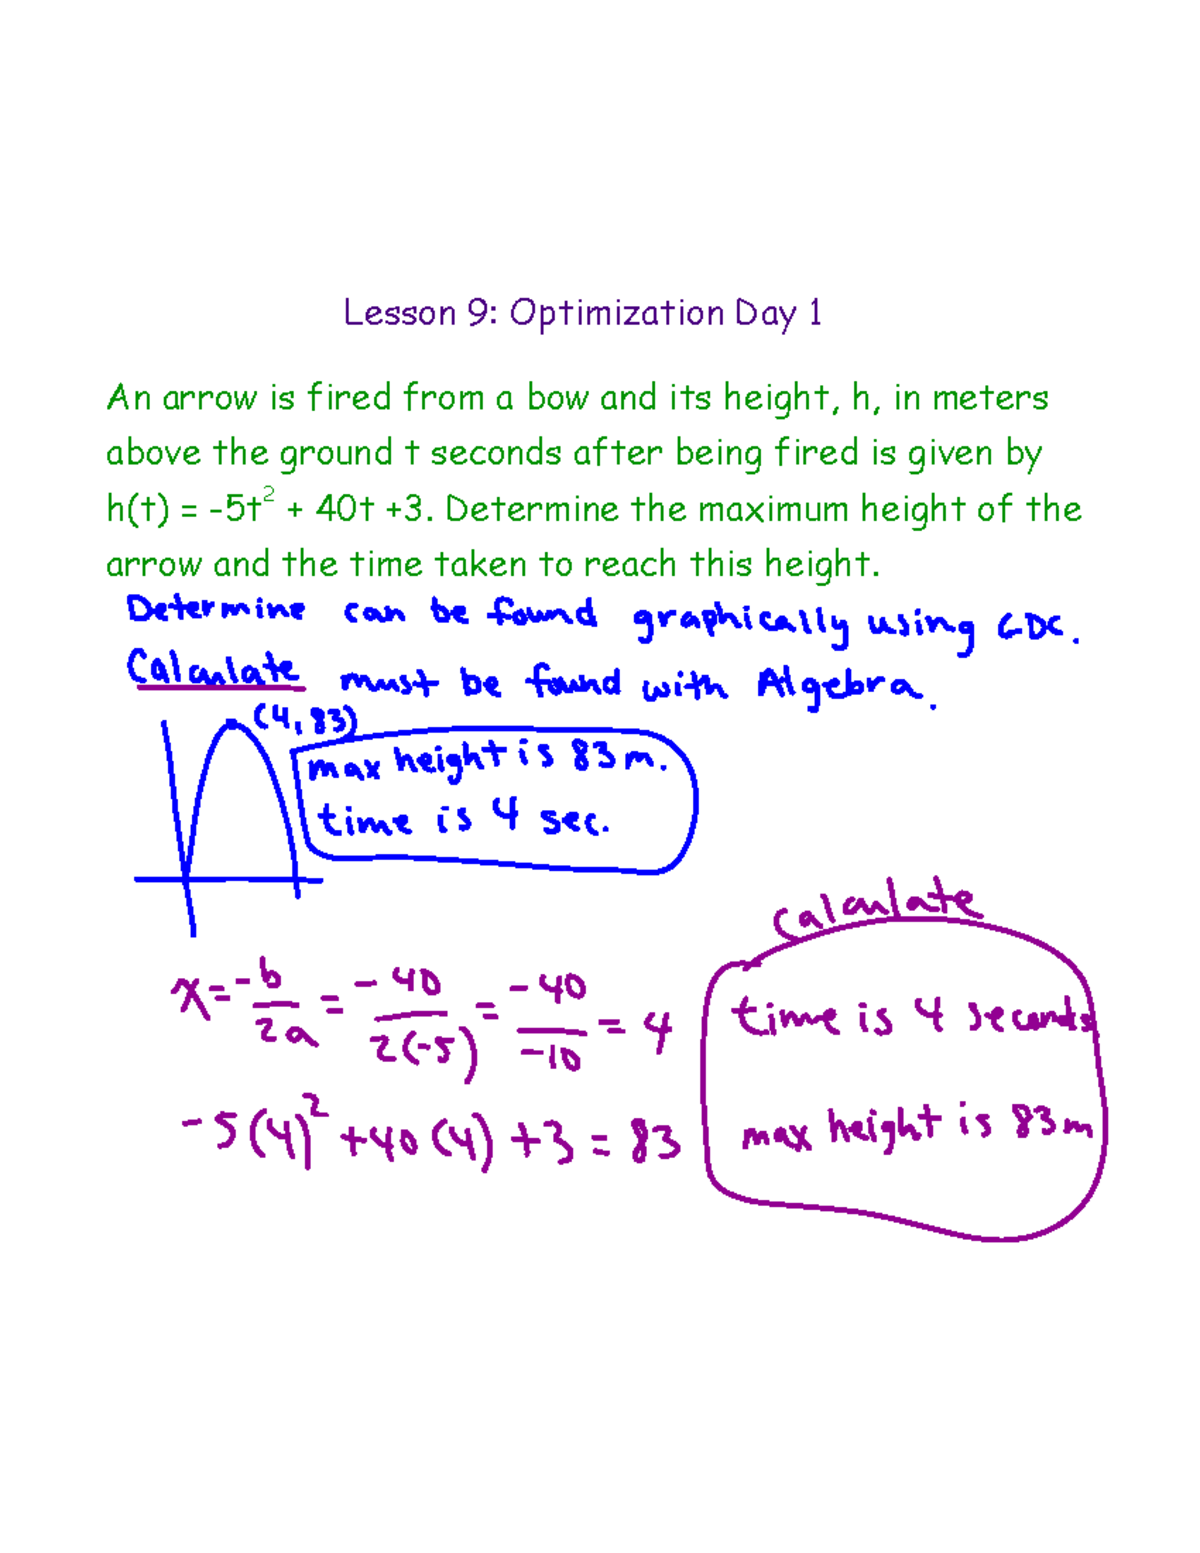 Lesson 9: Optimization Day 1
An arrow is fired from a bow and its height, h, in meters
above the ground t seconds after being fired is given by
h(t) = -5t² + 40t +3. Determine the maximum height of the
arrow and the time taken to reach this height.
Determine can be found graphically using GDC.
Calculate must be found with Algebra.
(4, 83)
max height is 83 m.
time is 4 sec.
x = -b/2a = -40/2(-5) = -40/-10 = 4
-5(4)² +40(4) +3 = 83
Calculate
time is 4 seconds
max height is 83 m